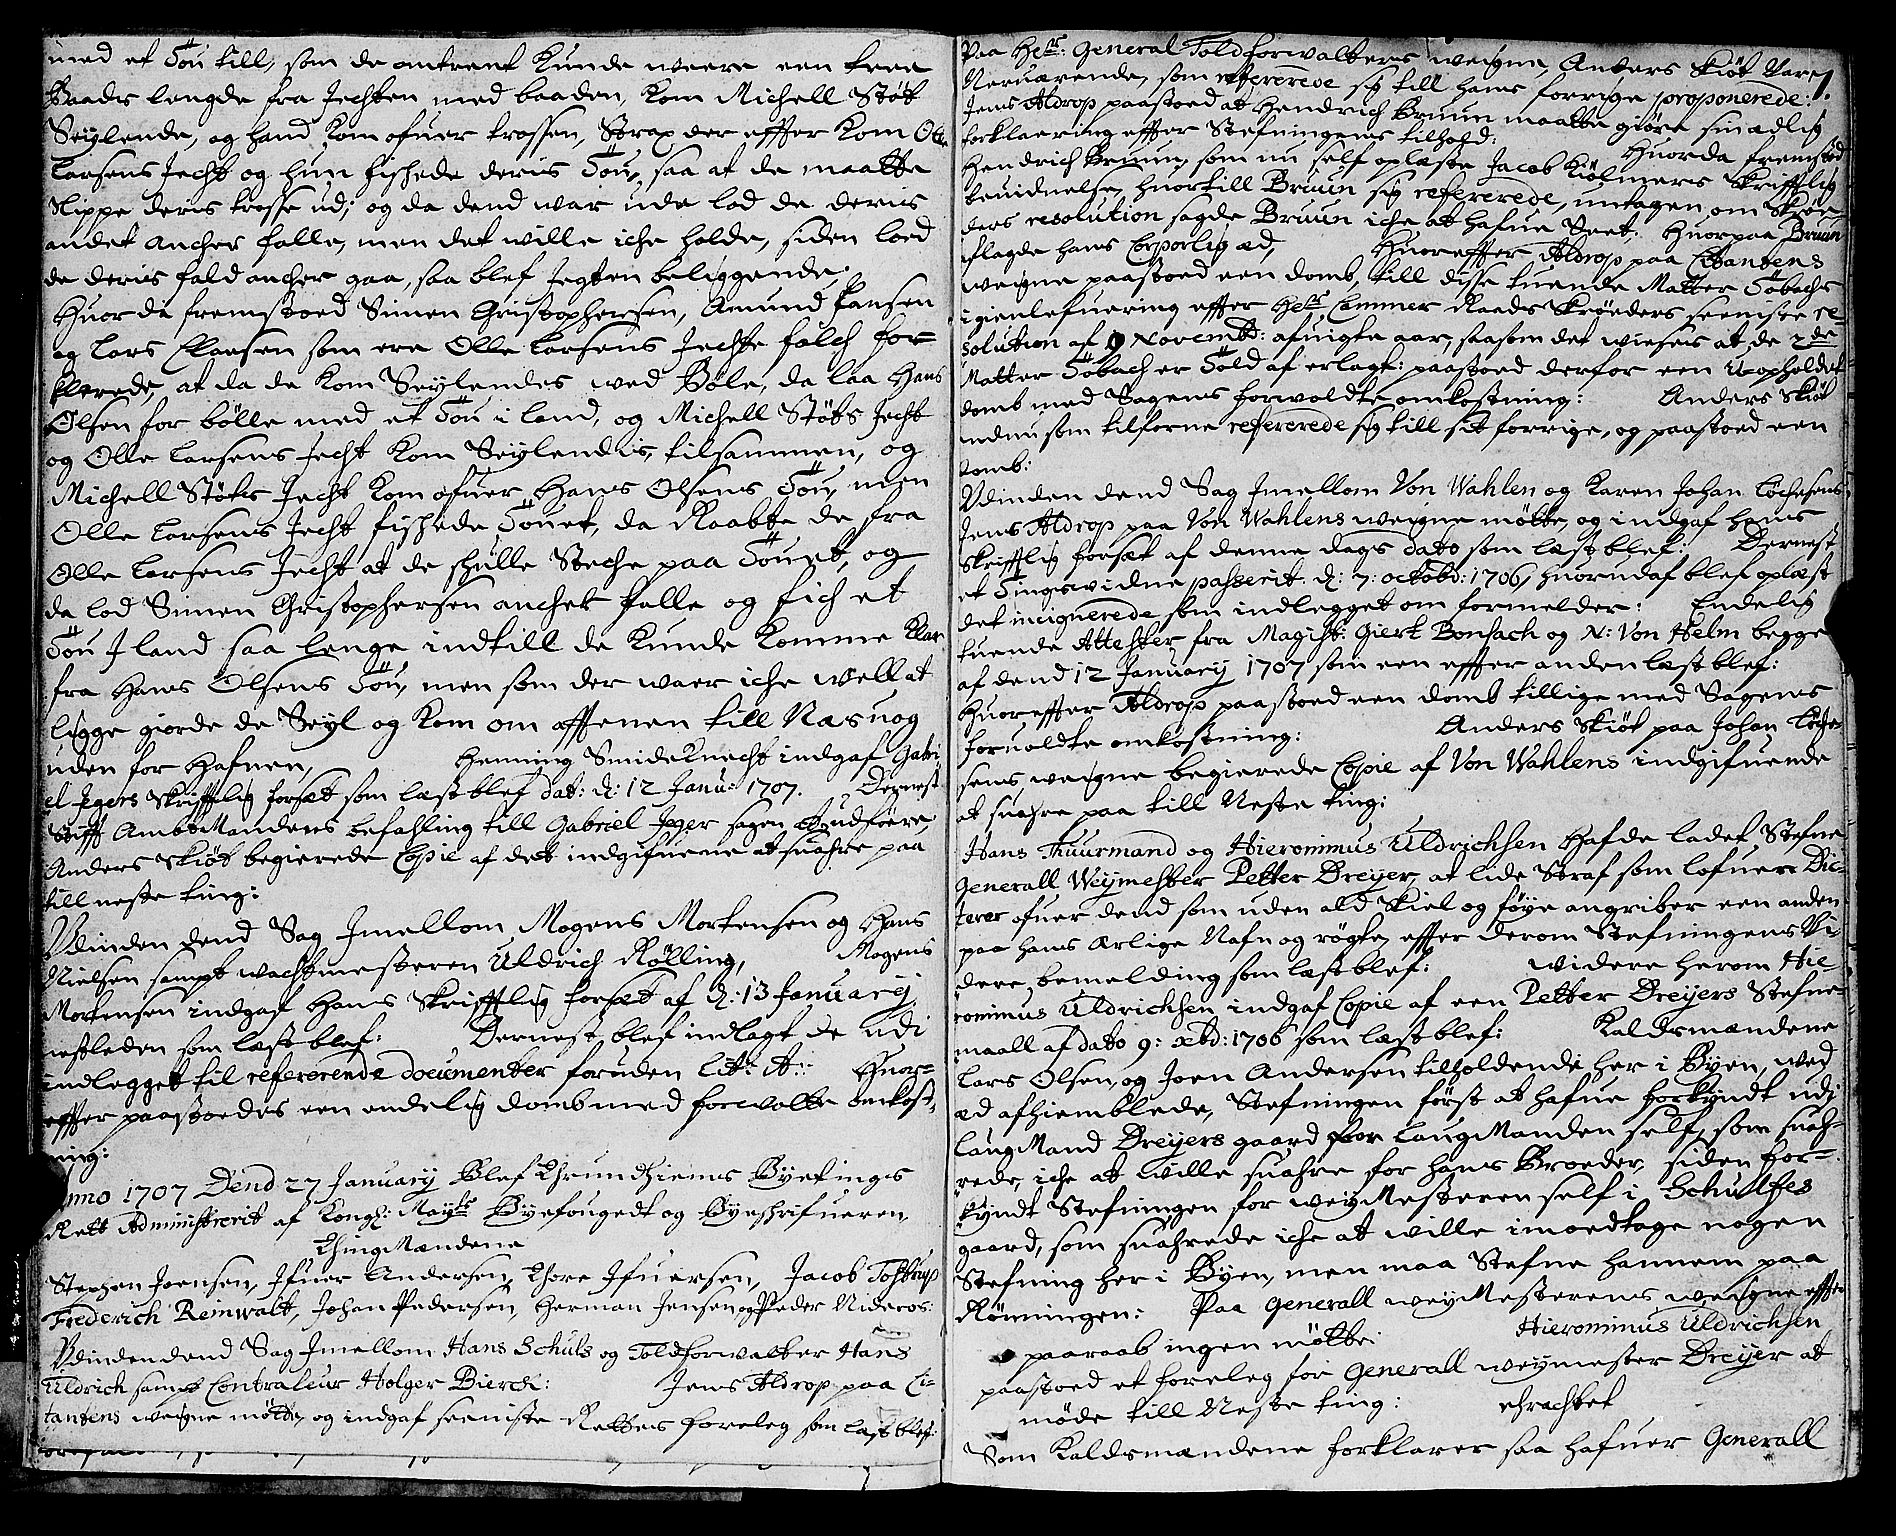 med et Tou till, som de omtrent kunde weere een knee
Baads lengde fra Jechten med baaden, kom Michell Støt
Seylende, og hand kom ofuer trossen, Strax der effter kom Olle
Larsens Jecht og hun fishede deris Tou, saa at de maatte
Slippe deris trosse ud; og da dend war ude lod de deris
andet ancher falle, men det wille iche holde, siden loed
de deris fald ancher gaa, saa blef Jegten beliggende;
Huor da fremstoed Simen Christophersen, Amund Hansen
og Lars Claesen som ere Olle Larsens Jechte folch for=
klerede, at da de kom Seylendes wed Bøle, da laa Hans
Olsen for bølle med et Tou i land, og Michell Støts Jecht
og Olle Larsens Jecht kom Seylendis, tilsammen, og
Michell Støts Jecht kom ofuer Hans Olsens Tou, men
Olle Larsens Jecht fishede Touet, da Raabte de fra
Olle Larsens Jecht at de shulle Steche paa Touet, og
da lod Simen Christophersen ancher falle og fich et
Tou J land saa lenge indtill de kunde komme klar
fra Hans Olsens Tou, men som der waer iche well at
ligge giorde de Seyl og kom om afftenen till Næs nog
uden for Hafnen, Henning Smideknecht indgaf Gabri
el Jegers Skrifftlig forset som læst blef dat: d: 12 Janu: 1707. Dernest
Stifft AmbtMandens befahling till Gabriel Jeger sagen at udføere,
Anders Skiøt begierede Copie af det indgifuene at suahre paa
till neste ting:
Udi inden dend Sag Jmellom Mogens Mortensen og Hans
Nielsen sampt wachtmesteren Uldrich Rølling, Mogens
Mortensen indgaf Hans Skrifftlig forset af d: 13 January
nestleden som læst blef: Dernest blef indlagt de udi
indlegget til refererende documenter foruden Lit: A: Huor=
effter paastoedes een endelig domb med forvolte omkost=
ning:
Anno 1707 Dend 27 January Blef Thrundhiems Byetings
Rett Administrerit af Kongl: Mayts Byefougedt og Byeshrifueren,
ThingMændene
Stephen Joensen, Jfuer Andersen, Thore Jfuersen, Jacob Tostrup
Frederich Reinwalt, Johan Pedersen, Herman Jensen og Peder Nideros:
Udi inden dend Sag Jmellom Hans Schults og Toldforwalter Hans
Uldrich sampt Contraleur Holger Bierch: Jens Aldrop paa Ci=
tantens weigne mødte, og indgaf seeniste Rettes foreleg som læst blef:
Paa Hr: General Toldforwalters weigne, Anders Skiøt War
Nerværende, som refererede sig till hans forrige proponerede:
Jens Aldrop paastoed at Hendrich Bruun maatte giøre sin ædlig
forklaering effter Stefningens tilhold: Huorda fremstoed
Hendrich Bruun, som nu self oplæste Jacob Kiølmers Skrifftlig
beuidnelse, huortill Bruun sig refererede, untagen om Skrøe=
ders resolution sagde Bruun iche at hafue Seet; Huorpaa Bruun
aflagde hans Corporlig æd, Huoreffter Aldrop paa Citantens
weigne paastoed een domb, till disse tuende Matter Tobachs
igienlefuering effter Hr: Cammer Raads Skrøeders seeniste re=
solution af 9 Novembr: afuigte aar, saasom det wieses at de 2de
Matter Tobach er Told af erlagt: paastoed derfor een Uopholdet
domb med Sagens forwoldte omkostning: Anders Skiøt
nu som tilforne refererede sig till sit forrige, og paastoed een
domb:
Udi inden dend Sag Jmellom Von Wahlen og Karen Johan Løchesens
Jens Aldrop paa Von Wahlens weigne mødte, og indgaf hans
Skrifftlig forset af denne dags dato som læst blef: Dernest
et Tingsvidne passerit d: 7: octobr: 1706, huorudaf blef oplæst
det incignerede som indlegget om formelder: Endelig
tuende Attester fra Magist: Giert Bonsach og N: Von Helm begge
af dend 12 January 1707 som een effter anden læst blef:
Huoreffter Aldrop paastoed een domb tillige med Sagens
foruoldte omkostning: Anders Skiøt paa Johan Løche
sens, weigne begierede Copie af Von Wahlens indgifuende
at suahre paa till Neste ting:
Hans Thuurmand og Hieronimus Uldrichsen Hafde ladet Stefne
Generall Weymester Petter Dreyer, at lide Straf som lofuen Dic=
terer ofuer dend som uden ald Skiel og føye angriber een anden
paa hans ærlige Nafn og røgte, effter derom Stefningens Vi=
dere, bemelding som læst blef: widere herom Hie=
ronimus Uldrichsen indgaf Copie af een Petter Dreyers Stefne=
maall af dato 9: xbr: 1706 som læst blef: Kaldsmændene
Lars Olsen, og Joen Andersen tilholdende her i Byen, wed
æd afhiemblede, Stefningen først at hafue forkyndt udi
LaugMand Dreyers gaard for LaugManden self, som suah=
rede, iche at wille suahre for hans Broeder, siden for=
kyndt Stefningen for weyMesteren self i Schultzes
gaard, som suahrede iche at wille imoedtage nogen
Stefning her i Byen, men maa Stefne hannem paa
Rønningen: Paa Generall weyMesterens weigne effter
paaraab ingen mødte: Hieronimus Uldrichsen
paastoed et foreleg for Generall weymester Dreyer at
møde till Neste ting: Erachtet
Som Kaldsmændene forklarer saa hafuer Generall